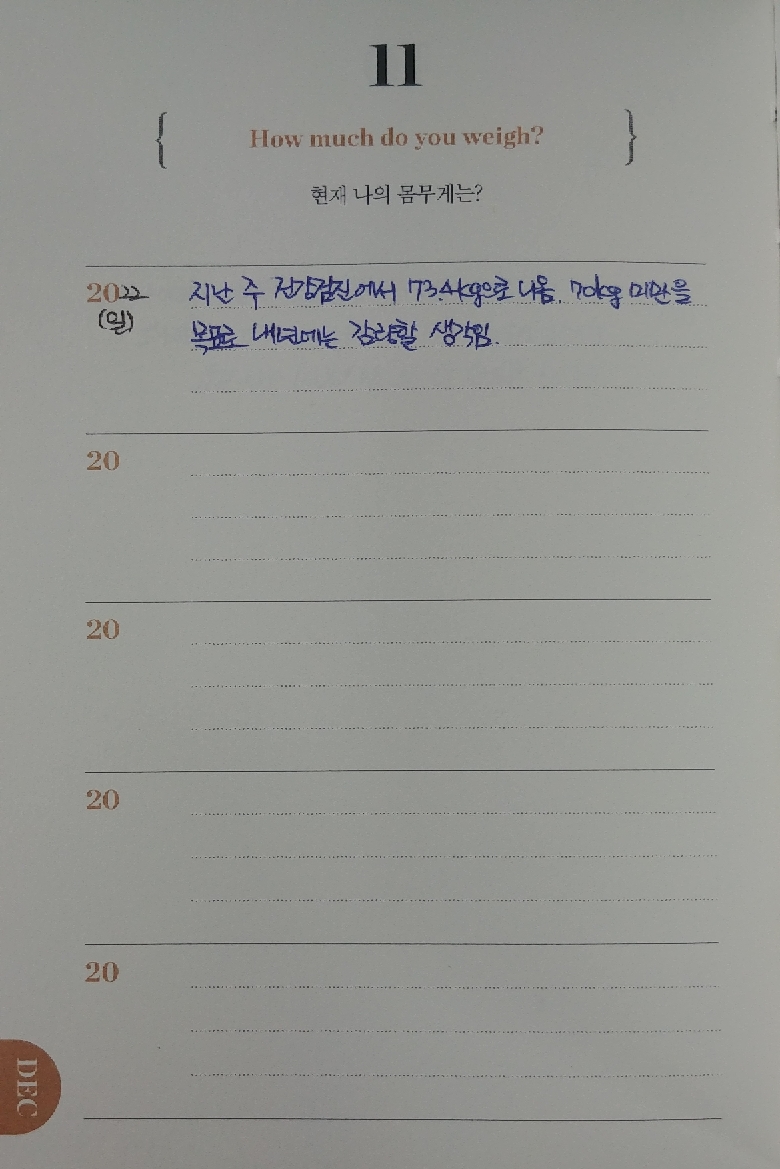 11
{ How much do you weigh? }
현재 나의 몸무게는?
2022 지난 주 건강검진에서 73.4kg으로 나옴. 70kg 미만을
(일) 목표로 내년에는 감량할 생각임.
20
20
20
20
DEC